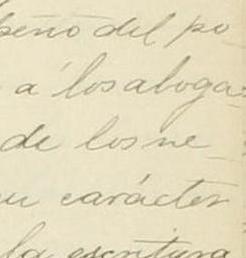 peño del po
á los aboga-
de los ne
su carácter
la escritura